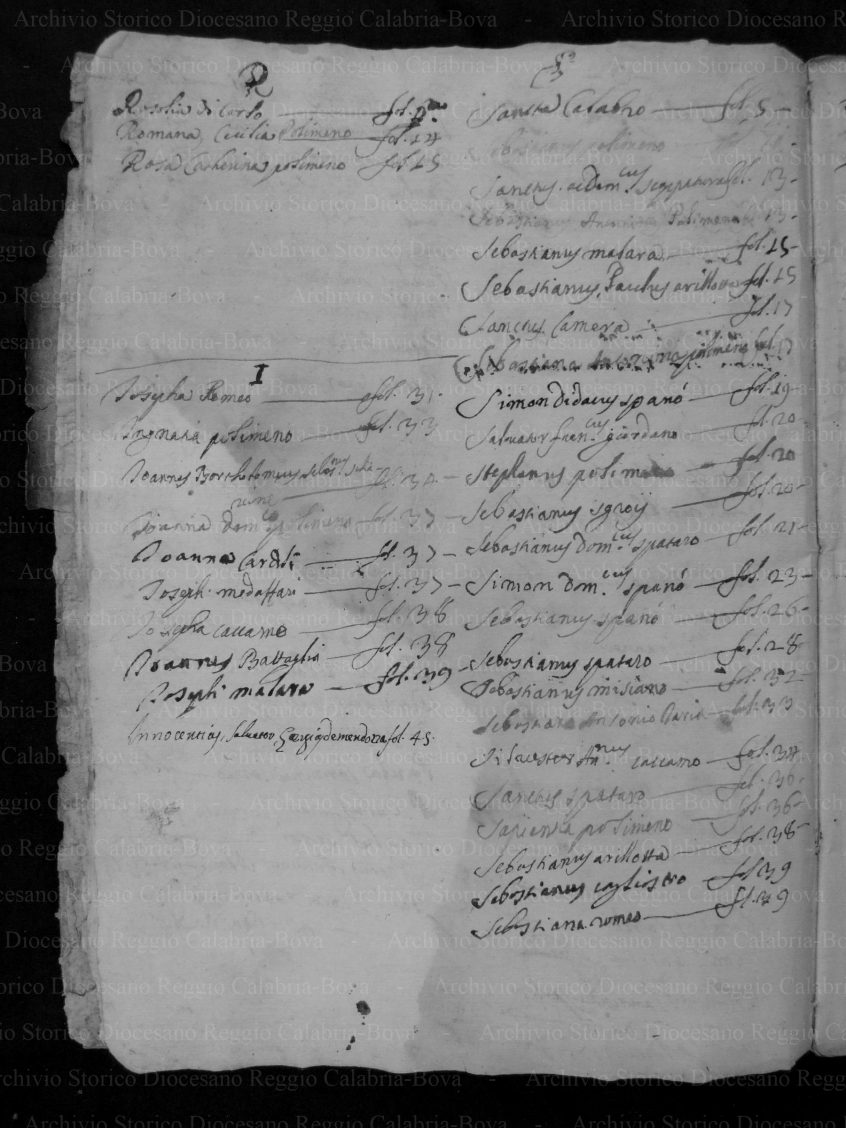 R
Rosolia di Corso fol.
Romana Cecilia Polimeno fol. 14
Rosa Catherina polimeno fol. 15
I
Josepha Romeo fol. 31
Ingnatia polimeno fol. 33
Joannes Bortholomeus
Joanna Domca polimeno fol. 37
Joanna Cardili fol. 37
Joseph medaffari fol. 37
Josepha caccamo fol. 38
Joannes Battaglia fol. 38
Joseph malara fol. 39
Innocentius, Salvator, de mendozza fol. 45
S
Sancta Calabro fol. 5
polimeno
Sanctus 13
Sebastianus Polimeno 13
Sebastianus malara fol. 15
Sebastianus Paulus arillotta fol. 15
Sanctus Camera fol. 17
Sebastiana polimeno fol. 17
Simon didacus spanó fol. 19
Salvator Francus giordano fol. 20
Stephanus polimeno fol. 20
Sebastianus sgroij fol. 20
Sebastianus domcus spataro fol. 21
Simon domcus spanó fol. 23
Sebastianus spanó fol. 26
Sebastianus spataro fol. 28
Sebastianus misiano fol. 32
Sebastiano Antonio fol. 33
Silvester caccamo fol. 34
Sanctus spataro fol. 36
Sapientia polimeno fol. 36
Sebastianus arillotta fol. 38
Sebastianus cogliostro fol. 39
Sebastiana romeo fol. 49